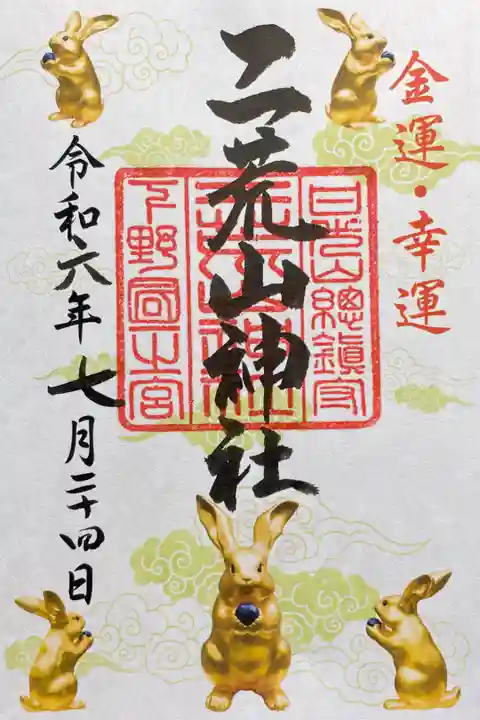 金運・幸運
二荒山神社
日光山總鎮守
二荒山神社
下野國一之宮
令和六年七月二十四日